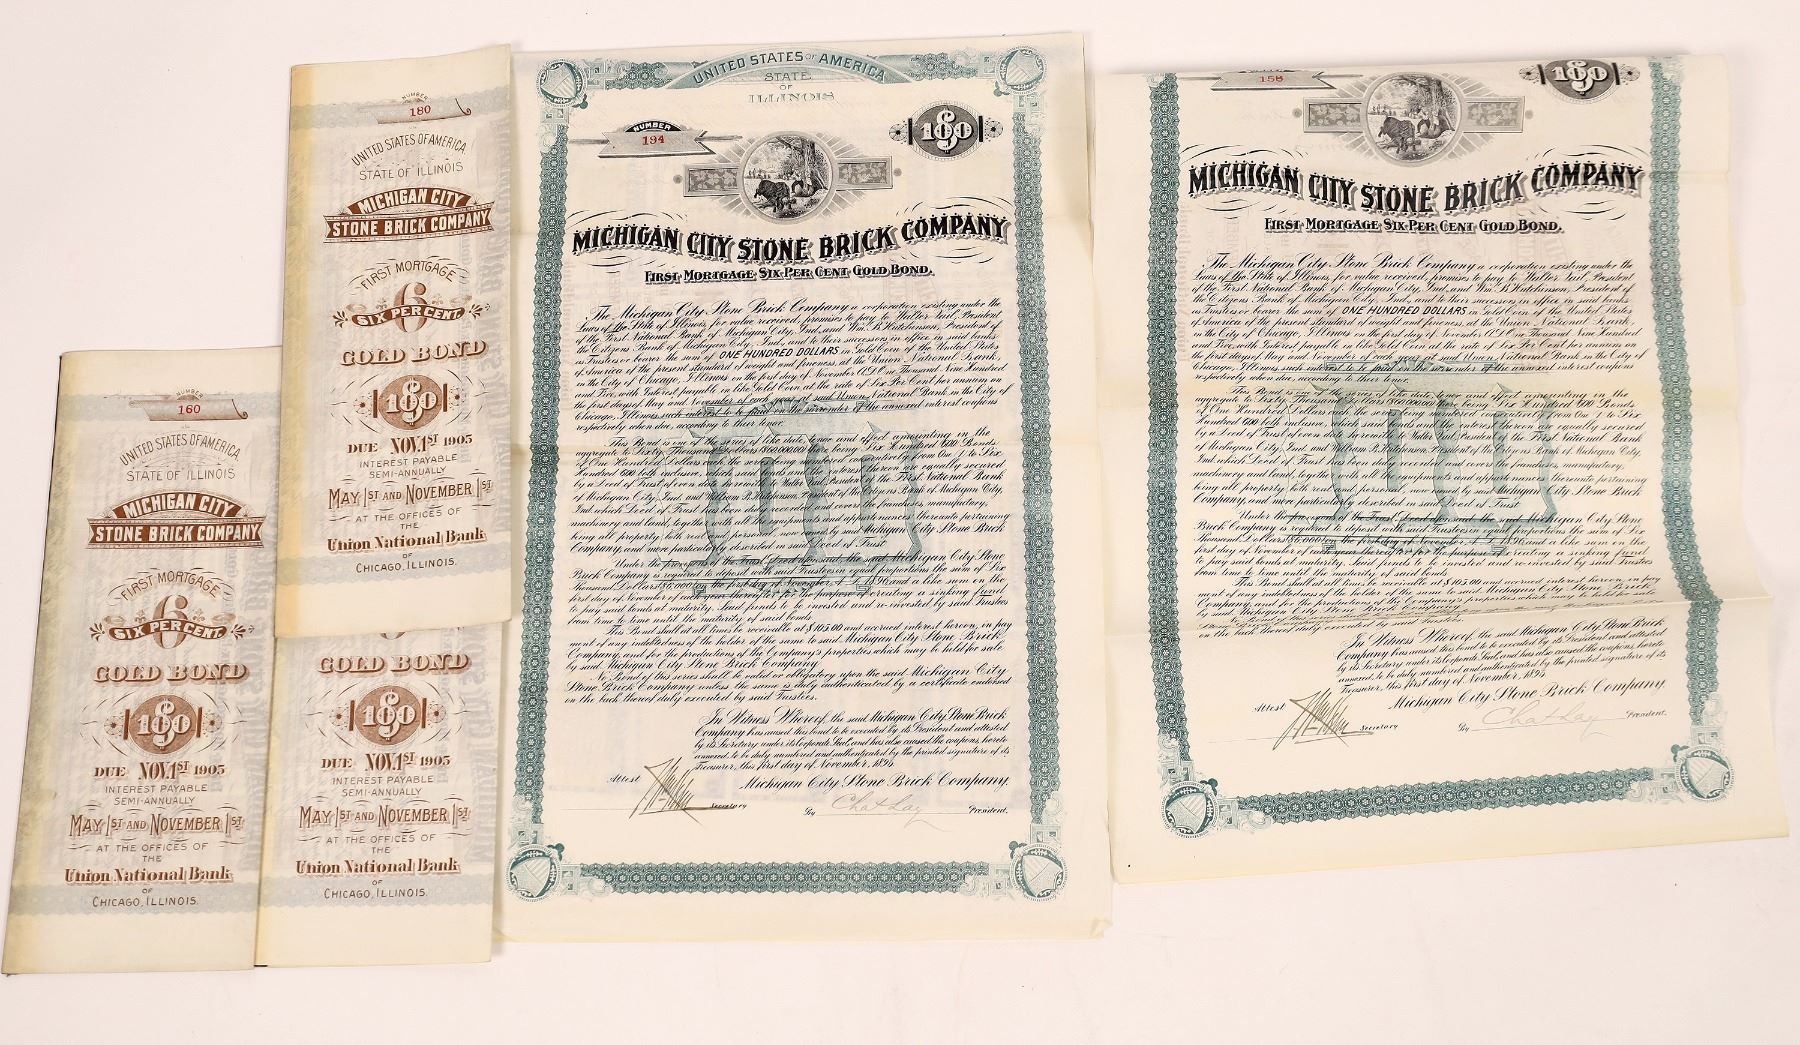 NUMBER
180
UNITED STATES OF AMERICA
STATE OF ILLINOIS
MICHIGAN CITY
STONE BRICK COMPANY
FIRST MORTGAGE
6
SIX PER CENT.
GOLD BOND
$100
DUE NOV. 1ST 1905
INTEREST PAYABLE
SEMI-ANNUALLY
MAY 1ST AND NOVEMBER 1ST
AT THE OFFICES OF
THE
Union National Bank
OF
CHICAGO, ILLINOIS.
NUMBER
160
UNITED STATES OF AMERICA
STATE OF ILLINOIS
MICHIGAN CITY
STONE BRICK COMPANY
FIRST MORTGAGE
6
SIX PER CENT.
GOLD BOND
$100
DUE NOV. 1ST 1905
INTEREST PAYABLE
SEMI-ANNUALLY
MAY 1ST AND NOVEMBER 1ST
AT THE OFFICES OF
THE
Union National Bank
OF
CHICAGO, ILLINOIS.
GOLD BOND
$100
DUE NOV. 1ST 1905
INTEREST PAYABLE
SEMI-ANNUALLY
MAY 1ST AND NOVEMBER 1ST
AT THE OFFICES OF
THE
Union National Bank
OF
CHICAGO, ILLINOIS.
UNITED STATES OF AMERICA
STATE
OF
ILLINOIS
NUMBER
194
$100
MICHIGAN CITY STONE BRICK COMPANY
FIRST MORTGAGE SIX PER CENT GOLD BOND.
The Michigan City Stone Brick Company a corporation existing under the
Laws of the State of Illinois, for value received, promises to pay to Walter Vail, President
of the First National Bank of Michigan City, Ind., and Wm. B. Hutchinson, President of
the Citizens Bank of Michigan City, Ind., and to their successors in office in said banks
as Trustees or bearer the sum of ONE HUNDRED DOLLARS in Gold Coin of the United States
of America of the present standard of weight and fineness, at the Union National Bank,
in the City of Chicago, Illinois on the first day of November A.D. One Thousand Nine Hundred
and Five, with Interest payable in like Gold Coin at the rate of Six Per Cent per annum on
the first days of May and November of each year at said Union National Bank in the City of
Chicago, Illinois, such interest to be paid on the surrender of the annexed interest coupons
respectively when due, according to their tenor.
This Bond is one of the series of like date, tenor and effect amounting in the
aggregate to Sixty Thousand Dollars ($60,000.00) there being Six Hundred (600) Bonds
of One Hundred Dollars each the same being numbered consecutively from One 1 to Six
Hundred 600 both inclusive, which said bonds and the interest thereon are equally secured
by a Deed of Trust of even date herewith to Walter Vail, President of the First National Bank
of Michigan City, Ind. and William B. Hutchinson, President of the Citizens Bank of Michigan City,
Ind. which Deed of Trust has been duly recorded and covers the franchises, manufactory,
machinery and land, together with all the equipments and appurtenances thereunto pertaining
being all property, both real and personal, now owned by said Michigan City Stone Brick
Company, and more particularly described in said Deed of Trust
Under the provisions of the Trust Deed aforesaid, the said Michigan City Stone
Brick Company is required to deposit with said Trustees in equal proportions the sum of Six
Thousand Dollars $6,000 on the first day of November, A.D. 1896 and a like sum on the
first day of November of each year thereafter for the purpose of creating a sinking fund
to pay said bonds at maturity. Said funds to be invested and re-invested by said Trustees
from time to time until the maturity of said bonds.
This Bond shall at all times be receivable at $105.00 and accrued interest hereon, in pay
ment of any indebtedness of the holder of the same to said Michigan City Stone Brick
Company, and for the productions of the Company's properties which may be held for sale
by said Michigan City Stone Brick Company
No Bond of this series shall be valid or obligatory upon the said Michigan City
Stone Brick Company unless the same is duly authenticated by a certificate endorsed
on the back thereof duly executed by said Trustees.
In Witness Whereof, the said Michigan City Stone Brick
Company has caused this bond to be executed by its President and attested
by its Secretary under its Corporate Seal, and has also caused the coupons, hereto
annexed, to be duly numbered and authenticated by the printed signature of its
Treasurer, this first day of November, 1895.
Michigan City Stone Brick Company.
Attest
Secretary
By Chat Lay President.
158
$100
MICHIGAN CITY STONE BRICK COMPANY
FIRST MORTGAGE SIX PER CENT GOLD BOND.
The Michigan City Stone Brick Company a corporation existing under the
Laws of the State of Illinois, for value received, promises to pay to Walter Vail, President
of the First National Bank of Michigan City, Ind., and Wm. B. Hutchinson, President of
the Citizens Bank of Michigan City, Ind., and to their successors in office in said banks
as Trustees or bearer the sum of ONE HUNDRED DOLLARS in Gold Coin of the United States
of America of the present standard of weight and fineness, at the Union National Bank,
in the City of Chicago, Illinois on the first day of November A.D. One Thousand Nine Hundred
and Five, with Interest payable in like Gold Coin at the rate of Six Per Cent per annum on
the first days of May and November of each year at said Union National Bank in the City of
Chicago, Illinois, such interest to be paid on the surrender of the annexed interest coupons
respectively when due, according to their tenor.
This Bond is one of the series of like date, tenor and effect amounting in the
aggregate to Sixty Thousand Dollars ($60,000.00) there being Six Hundred (600) Bonds
of One Hundred Dollars each the same being numbered consecutively from One 1 to Six
Hundred 600 both inclusive, which said bonds and the interest thereon are equally secured
by a Deed of Trust of even date herewith to Walter Vail, President of the First National Bank
of Michigan City, Ind. and William B. Hutchinson, President of the Citizens Bank of Michigan City,
Ind. which Deed of Trust has been duly recorded and covers the franchises, manufactory,
machinery and land, together with all the equipments and appurtenances thereunto pertaining
being all property, both real and personal, now owned by said Michigan City Stone Brick
Company, and more particularly described in said Deed of Trust
Under the provisions of the Trust Deed aforesaid, the said Michigan City Stone
Brick Company is required to deposit with said Trustees in equal proportions the sum of Six
Thousand Dollars $6,000 on the first day of November, A.D. 1896 and a like sum on the
first day of November of each year thereafter for the purpose of creating a sinking fund
to pay said bonds at maturity. Said funds to be invested and re-invested by said Trustees
from time to time until the maturity of said bonds.
This Bond shall at all times be receivable at $105.00 and accrued interest hereon, in pay
ment of any indebtedness of the holder of the same to said Michigan City Stone Brick
Company, and for the productions of the Company's properties which may be held for sale
by said Michigan City Stone Brick Company
on the back thereof duly executed by said Trustees.
In Witness Whereof, the said Michigan City Stone Brick
Company has caused this bond to be executed by its President and attested
by its Secretary under its Corporate Seal, and has also caused the coupons, hereto
annexed, to be duly numbered and authenticated by the printed signature of its
Treasurer, this first day of November, 1895.
Michigan City Stone Brick Company.
Attest
Secretary
By Chat Lay President.